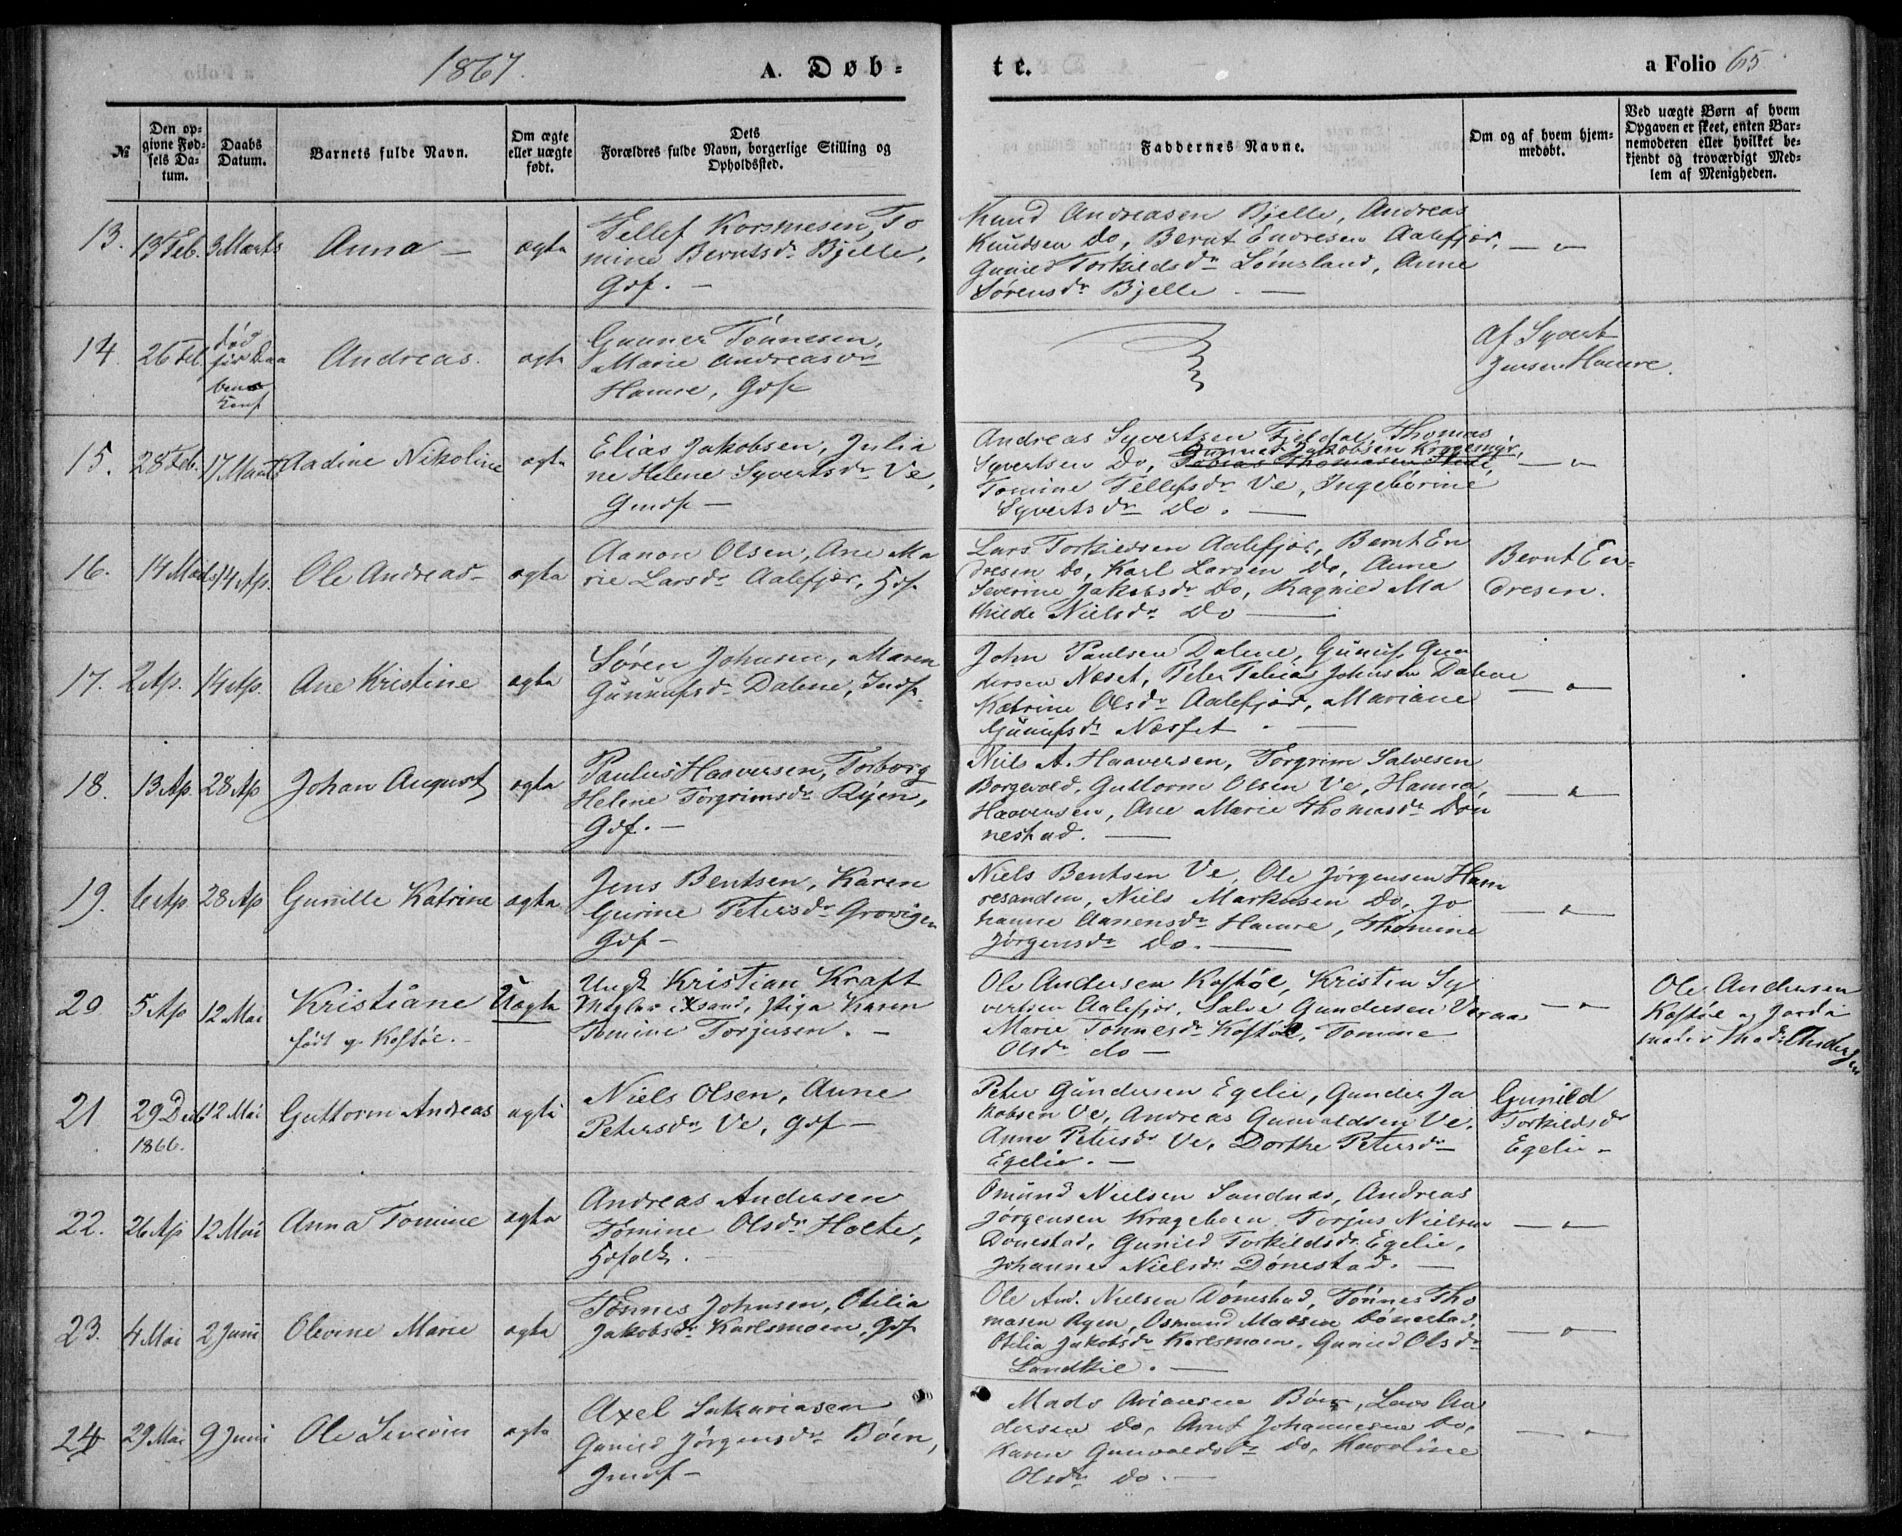 1867.
A. Døb-
te.
a Folio 65
№
Den op-
givne Fød-
sels Da-
tum.
Daabs
Datum.
Barnets fulde Navn.
Om ægte
eller uægte
født.
Dets
Forældres fulde Navn, borgerlige Stilling og
Opholdssted.
Faddernes Navne.
Om og af hvem hjem-
medøbt.
Ved uægte Børn af hvem
Opgaven er skeet, enten Bar-
nemoderen eller hvilket be-
kjendt og troværdigt Med-
lem af Menigheden.
13. 13 Feb. 3 Marts Anna — ægte
Tellef Korsmesen, To
mine Berntsdr Bjelle,
Gdf. —
Knud Andreasen Bjelle, Andreas
Knudsen Do, Bernt Endresen Aalefjær,
Gunild Torkildsdr Lømsland, Anne
Sørensdr Bjelle. —
14. 26 Feb død
før Daa
ben
Andreas. ægte
Gunner Tønnesen,
Marie Andreasdr
Hamre, Gdf
Af Syvert
Jensen Hamre.
15. 28 Feb. 17 Marts Aadine Nikoline ægte
Elias Jakobsen, Julia
ne Helene Syvertsdr Ve,
Gmdf —
Andreas Syvertsen Fjeldal, Thomas
Gunner Jakobsen Kragemyr,
Syvertsen Do, Tobias Thomasen
Tomine Tellefsdr Ve, Ingeborine
Syvertsdr Do. —
16. 14 Mads 14 Ap. Ole Andreas — ægte
Aanon Olsen, Ane Ma
rie Larsdr Aalefjær, Hdf
Lars Torkildsen Aalefjær, Bernt En
dresen Do, Karl Larsen Do, Anne
Severine Jakobsdr Do, Ragnild Ma
thilde Nielsdr Do —
Bernt En-
dresen.
17. 2 Ap. 14 Ap. Ane Kristine ægte
Søren Johnsen, Maren
Gunufsdr Dalene, Indf.
John Paulsen Dalene, Gunuf Gun
dersen Næset, Peter Tobias Johnsen Dalene
Katrine Olsdr Aalefjær, Mariane
Gunufsdr Næsset. —
18. 13 Ap 28 Ap Johan August ægte
Paulus Haaversen, Torborg
Helene Torgrimsdr Ryen,
Gdf. —
Niels A. Haaversen, Torgrim Salvesen
Borgevold, Guttorm Olsen Ve, Hanna
Haaversen, Ane Marie Thomasdr Døn
nestad. —
19. 6 Ap 28 Ap Gunille Katrine ægte
Jens Bentsen, Karen
Gurine Petersdr Grovigen
Gdf —
Niels Bentsen Ve, Ole Jørgensen Ham
resanden, Niels Markusen Do, Jo
hanne Aanensdr Hamre, Thomine
Jørgensdr Do. —
20. 5 Ap 12 Mai Kristiane
født p. Kostøl. — Uægte
Ungk Kristian Kraft
Mægler i Xsand, Piga Karen
Tomine Torjusen. —
Ole Andersen Kostøl, Kristen Sy
vertsen Aalefjær, Salve Gundersen Veraas
Marie Tønnesdr Kostøl, Tomine
Olsdr do —
Ole Andersen
Kostøl og Jorde
moder Mad. Andersen
21 29 Decb
1866. 12 Mai Guttorm Andreas ægte
Niels Olsen, Anne
Petersdr Ve, Gdf —
Peter Gundersen Egelie, Gunder Ja
kobsen Ve, Andreas Gunvaldsen Ve,
Anne Petersdr Ve, Dorthe Petersdr
Egelie. —
Gunild
Torkildsdr
Egelie —
22. 26 Ap 12 Mai Anna Tomine ægte
Andreas Andersen
Tomine Olsdr Holte,
Hdfolk. —
Omund Nielsen Sandnes, Andreas
Jørgensen Krageboen, Torjus Nielsen
Dønestad, Gunild Torkildsdr Egelie,
Johanne Nielsdr Dønestad. —
23. 4 Mai 2 Juni Olevine Marie ægte
Tønnes Johnsen, Otilia
Jakobsdr Karlsmoen, Gdf
Ole And. Nielsen Dønestad, Tønnes Tho
masen Ryen, Osmund Madsen Dønestad,
Otilia Jakobsdr Karlsmoen, Gunild Olsdr
Landkie. —
24 29 Mai 9 Juni Ole Severin ægte
Axel Sakariasen
Gunild Jørgensdr Bøen,
Gmdf —
Mads Arianesen Bøen, Lars An
dersen Do, Arnt Johannesen Do,
Karen Gunvaldsdr Do, Karoline
Olsdr Do. —